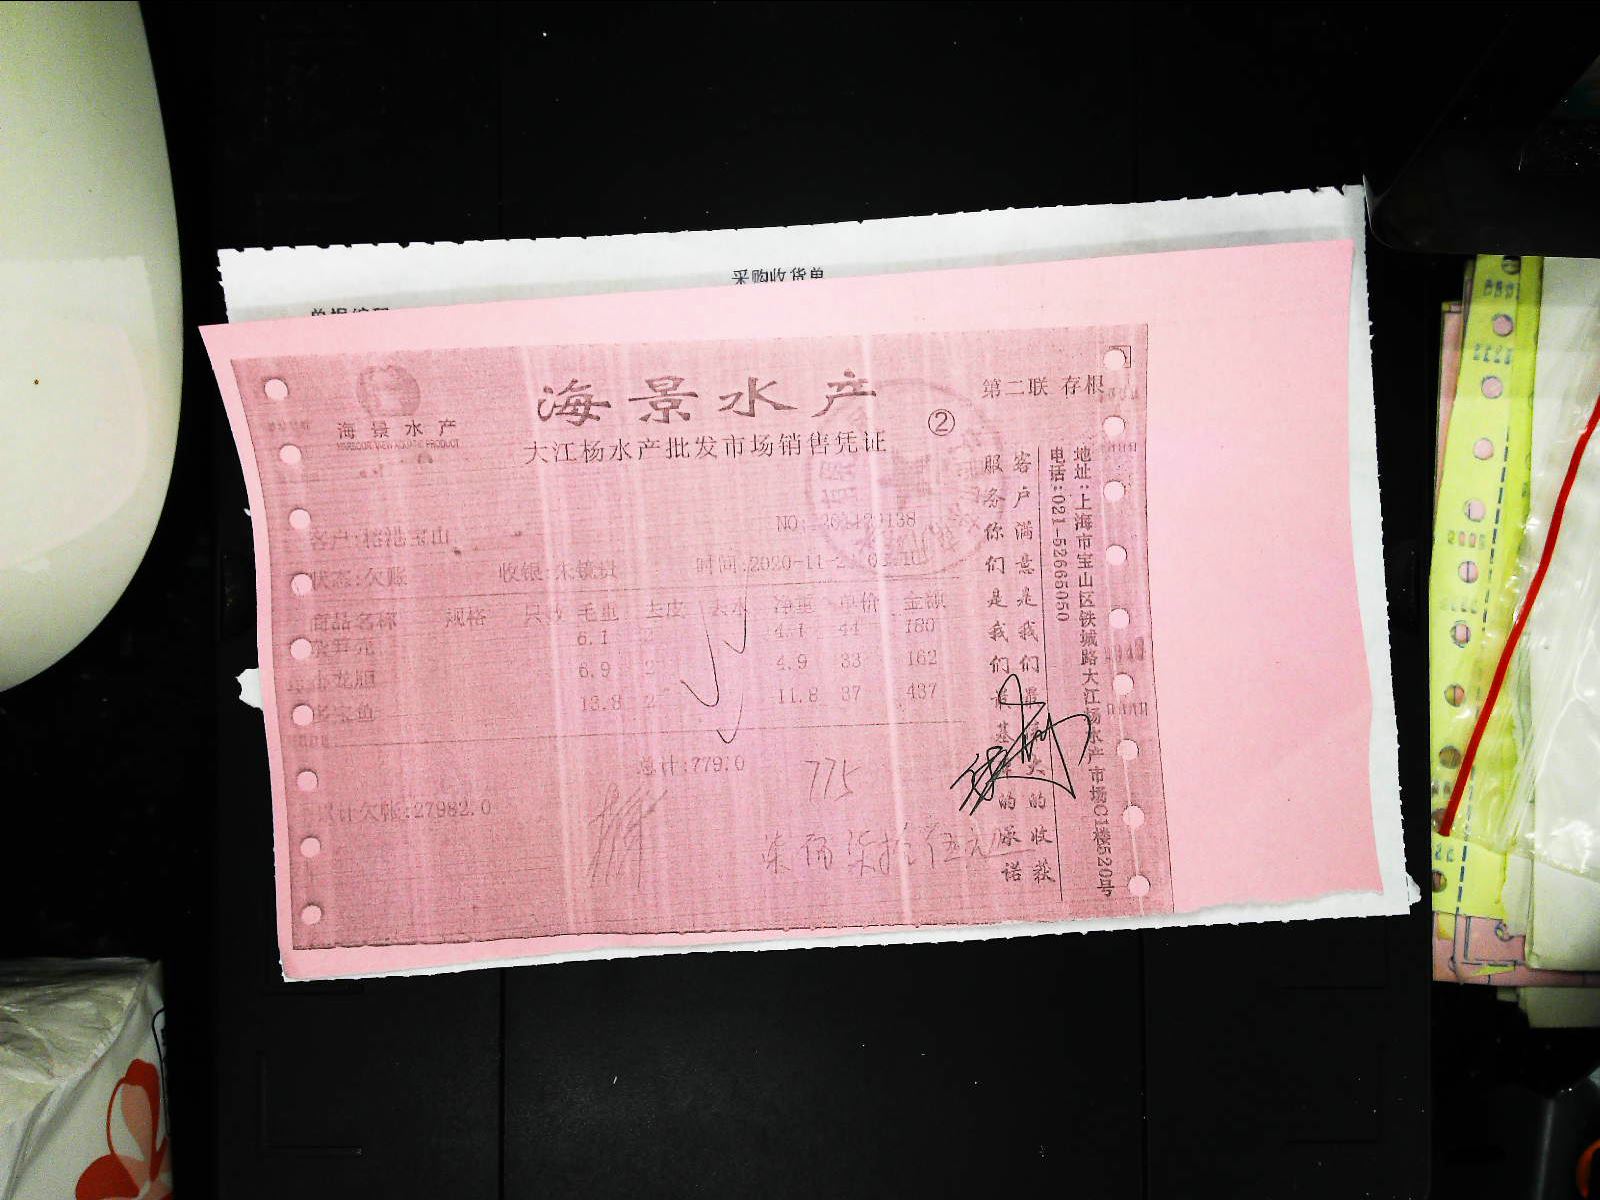 采购收货单
海景水产
HARBOUR VIEW AQUATIC PRODUCT
海景水产
大江杨水产批发市场销售凭证
②
第二联 存根
客户:
状态:欠账 收银:朱镜 时间:2020-11-2
商品名称 规格 只数 毛重 去皮 去水 净重 单价 金额
6.1 2 4.1 44 180
龙胆 6.9 2 4.9 33 162
多宝鱼 13.8 2 11.8 37 437
总计:779.0
775
累计欠账:27982.0
柒佰柒拾伍元
客户满意是我们最大的收获
服务你们是我们最基本的承诺
地址:上海市宝山区铁城路大江杨水产市场C1楼520号
电话:021-52665050